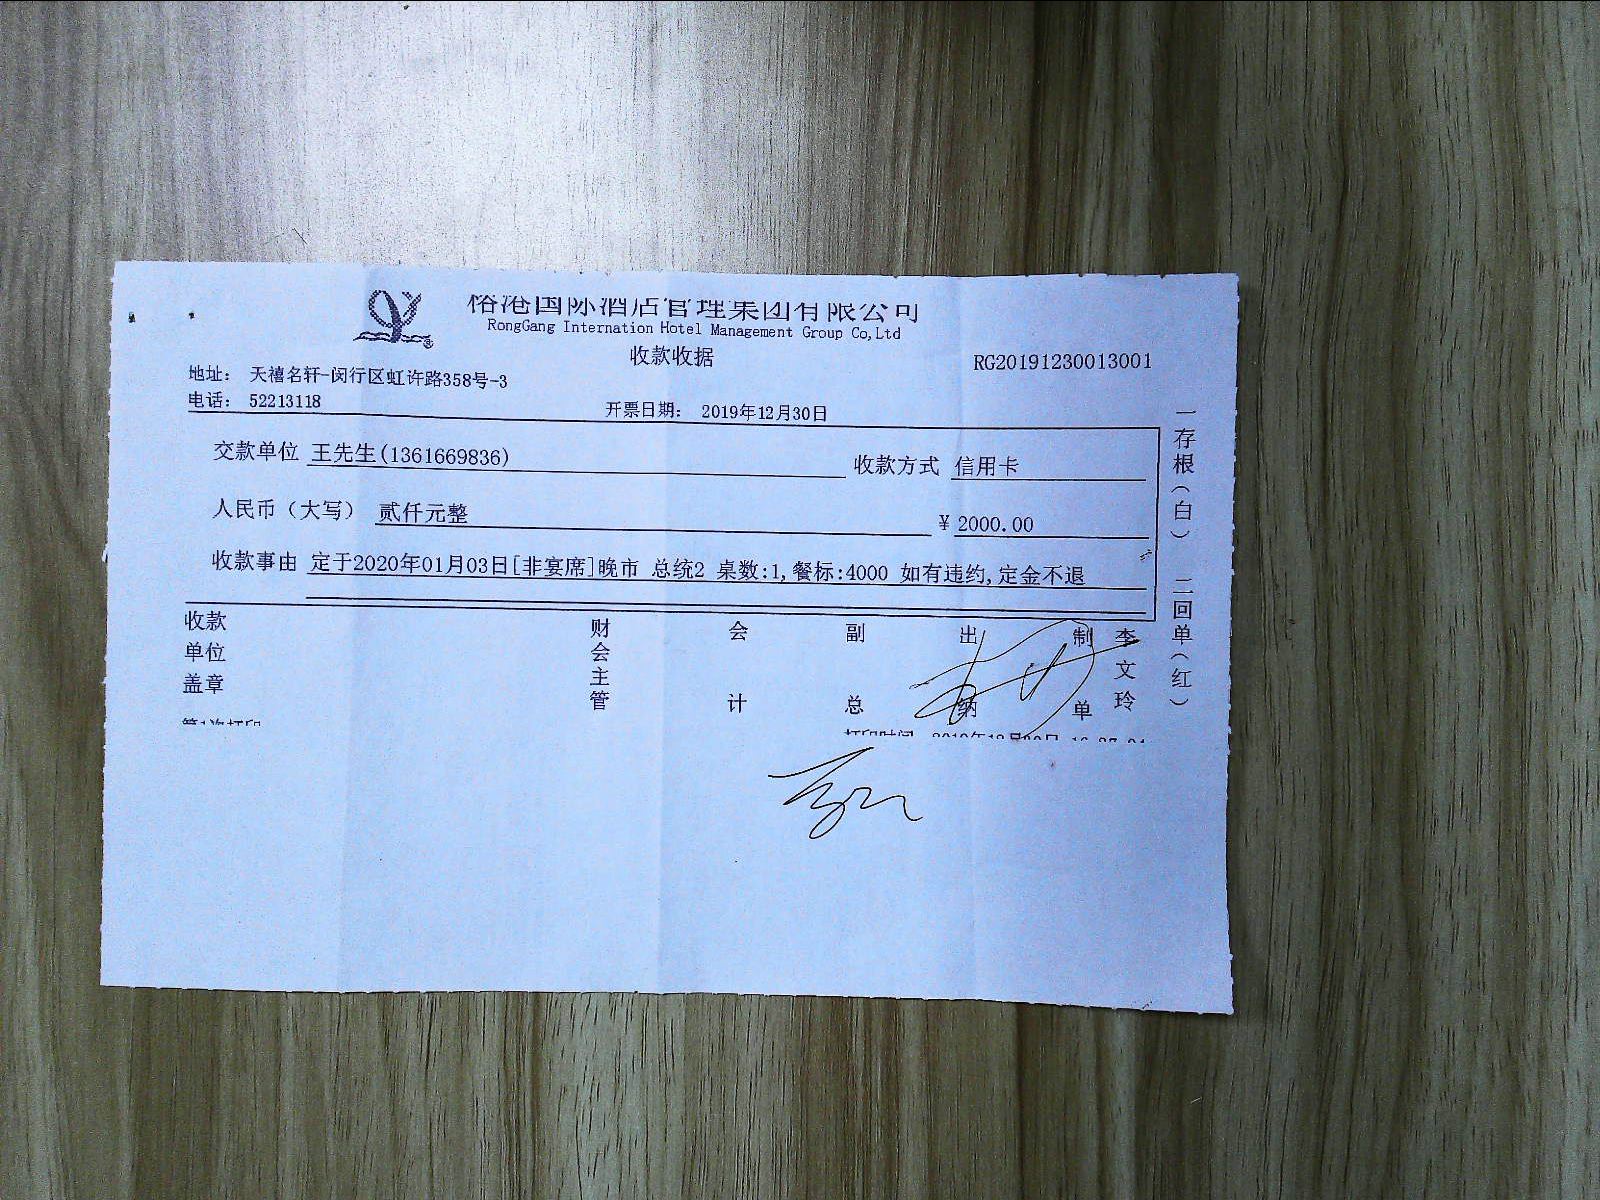 榕港国际酒店管理集团有限公司
RongGang Internation Hotel Management Group Co,Ltd
收款收据
RG20191230013001
地址： 天禧名轩-闵行区虹许路358号-3
电话： 52213118
开票日期： 2019年12月30日
交款单位 王先生(1361669836)
收款方式 信用卡
人民币（大写） 贰仟元整
￥2000.00
收款事由 定于2020年01月03日[非宴席]晚市 总统2 桌数:1,餐标:4000 如有违约,定金不退
收款单位盖章
财会主管
会计
副总
出纳
制单
李文玲
一存根（白） 二回单（红）